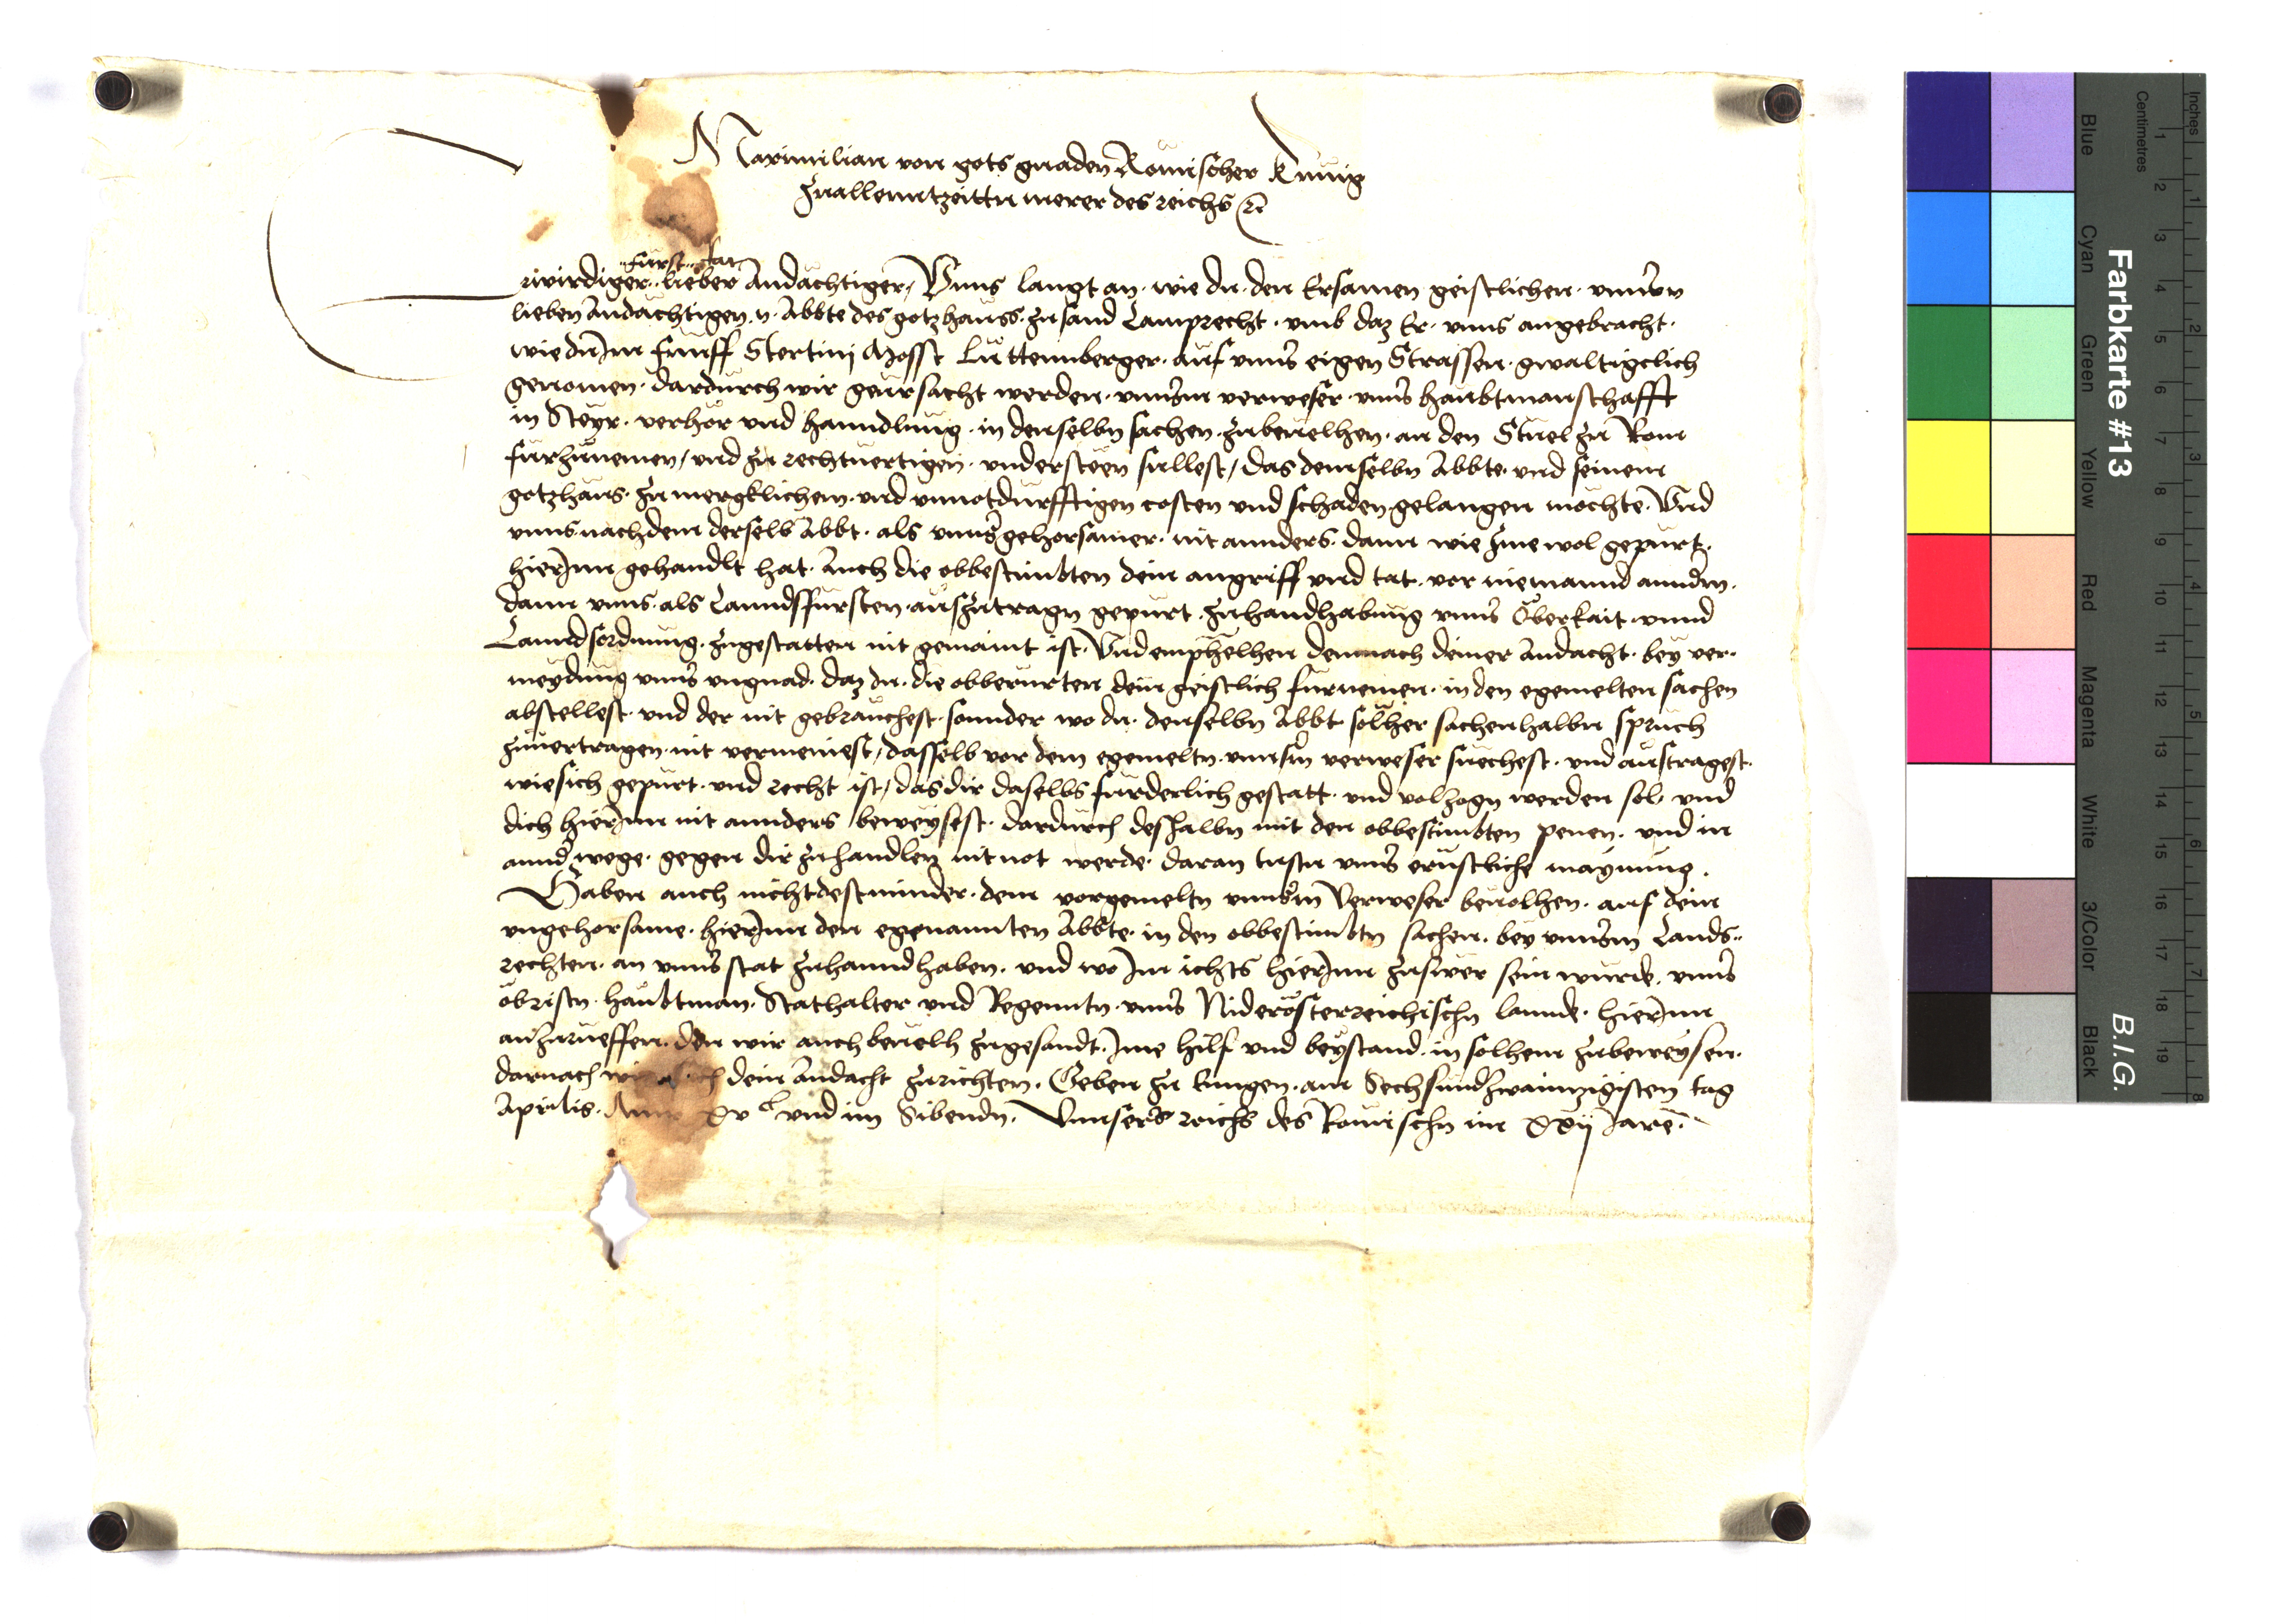 Maximilian von gots gnaden Romischer Kunig
zuallenntzeittn merer des reichs &c
Furst Rat
Erwirdiger lieber Andachtiger, Vnns langt an, wie du den Ersamen geistlichen vnnsern
lieben Andachtigen N. Abbte des gotzhauss zu sand Lamprecht, vmb daz Er vnns angebracht,
wie du Im funff Stertinj Mosst Luttennberger auf vnns eigen Strassen gwaltigclich
genomen, dardurch wir geursacht werden, vnnserm verweser vnns haubtmanschafft
in Steyr, verhor vnd hanndlung in denselbn sachen zubeuelhen, an den Stuel zu Rom
furzunemen, vnd zu rechtuertigen vndersteen sullest, das demselbn Abbte vnd seinem
gotzhaus zu mergklichem vnd vnnotdurfftigen costen vnd schaden gelangen mochte. Vnd
vnns nachdem derselb Abbt als vnns gehorsamer, nit annders, dann wie Ime wol gepurt,
hierInn gehandlt hat, Auch die obbestimbten dein angriff vnd tat, vor niemannd anndern,
dann vnns als Lanndsfursten auszutragn gepurt, zuhandhabung vnns Oberkait vnnd
Lanndsordnung, zugestatten nit gemaint ist. Vnd emphelhen demnach deiner Andacht bey ver-
meydung vnns vngnad, daz du die obberurten dein geistlich furnemen in den egemelten sachen
abstellest vnd der nit gebrauchest, sonnder wo du denselbn Abbt solher sachenhalbn spruch
zuuertragen nit vermeinest, dasselb vor dem egemeltn vnnserm verweser suechest vnd austragest,
wie sich gepurt vnd recht ist, das dir daselbs furderlich gestatt vnd volzogn werden sol, vnd
dich hierInn nit annders beweysest, dardurch deshalbn mit den obbestimbten penen, vnd in
annder wege gegen dir zuhandlen nit not werde. daran tustu vnns ernstliche maynung.
Haben auch nichtdestminder dem vorgemeltn vnnserm Verweser beuolhen, auf dein
vngehorsame, hierInn den egenannten Abbte, in den obbestimbtn sachen, bey vnnserm Lands-
rechten, an vnns stat zuhanndhaben, vnd wo Im ichts hierInn zuswer sein wurde, vnns
obristn haubtman, Stathalter vnd Regenntn vnns Niderosterreichischn lannde, hierInn
anzurueffen, den wir auch beuelh zugesandt, Ime hilf vnd beystand in solhem zubeweysen,
darnach wiss sich dein Andacht zurichten. Geben zu Lungen am Sechsundzwainnzigisten tag
Aprilis. Anno XVc vnd im Sibendn. Vnnsers reichs des Romischn im XXij Jare.
Farbkarte #13
B.I.G.
Inches 1 2 3 4 5 6 7 8
Centimetres 1 2 3 4 5 6 7 8 9 10 11 12 13 14 15 16 17 18 19
Blue Cyan Green Yellow Red Magenta White 3/Color Black